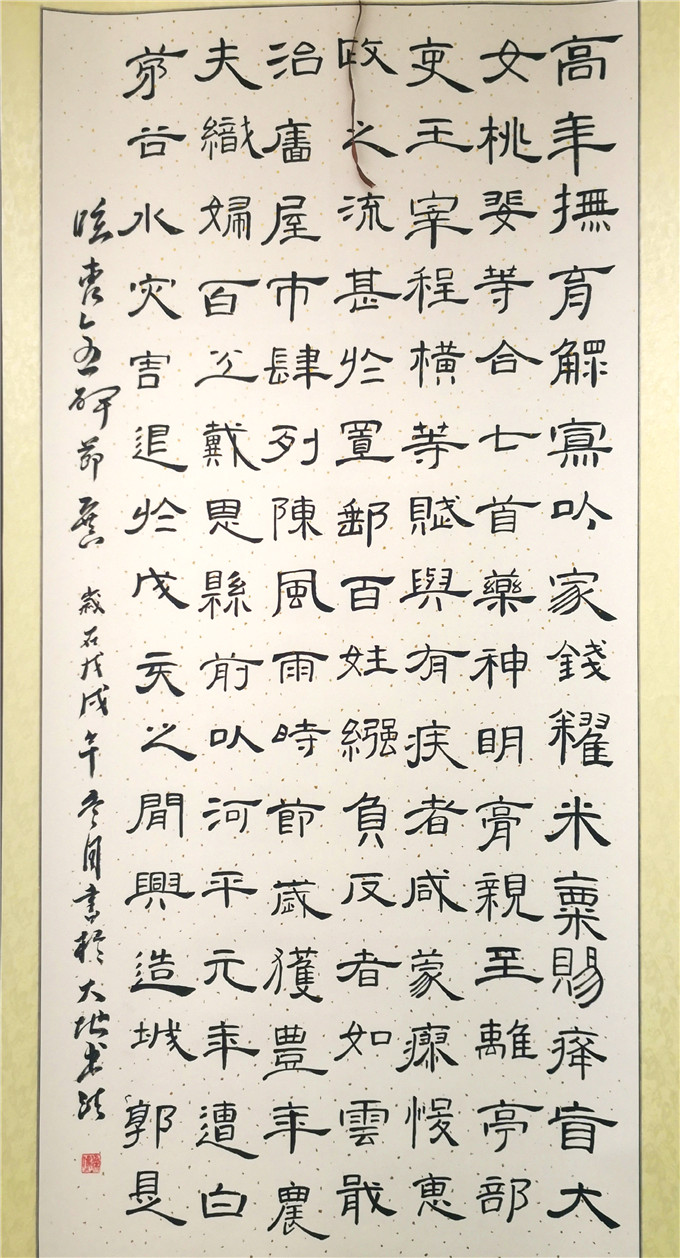 高年撫育鰥寡以家錢糴米粟賜癃盲大
女桃婓等合七首藥神明膏親至離亭部
吏王宰程橫等賦與有疾者咸蒙瘳悛惠
政之流甚於置郵百姓繦負反者如雲戢
治廧屋市肆列陳風雨時節歲獲豐年農
夫織婦百工戴恩縣前以河平元年遭白
茅谷水灾害退於戊亥之間興造城郭是
臨曹全碑節錄 歲在戊戌年冬月書於大地書